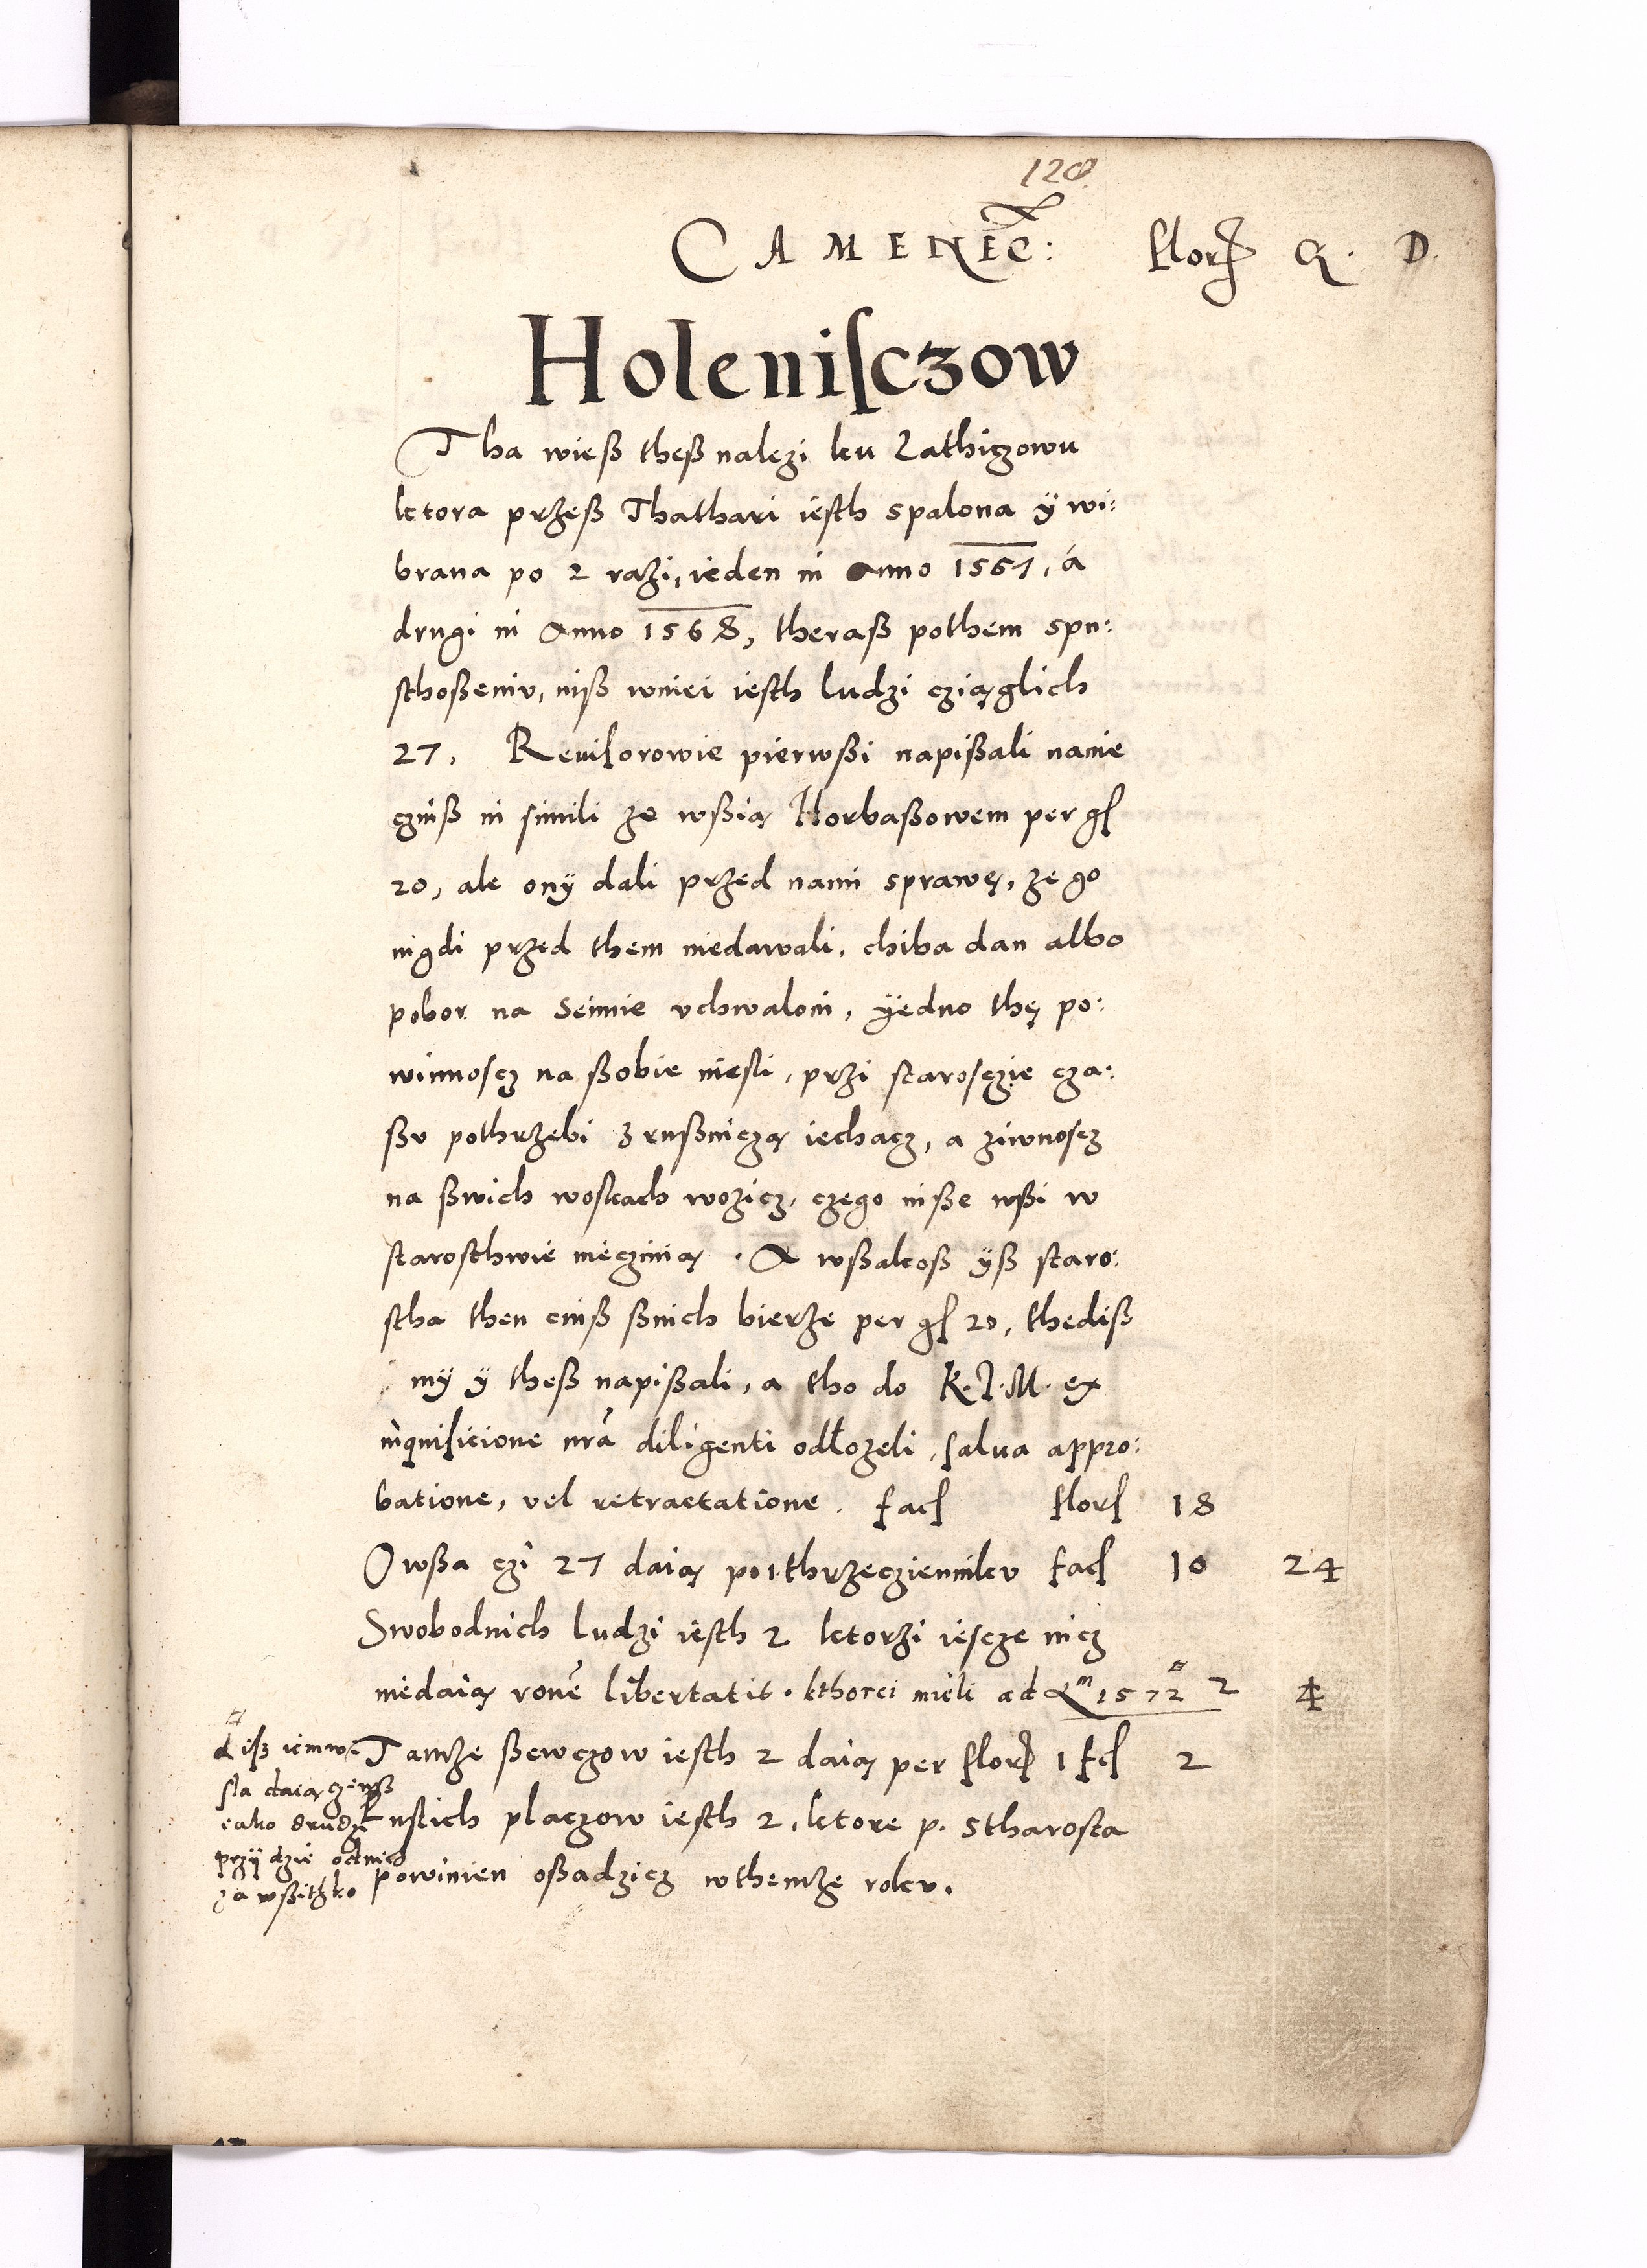 120.
CAMENEC: florꝭ G. D.
Holeniſczow
Tha wieß theß nalezi ku Lathiczowu
ktora przeß Thathari iesth spalona ÿ wi:
brana po 2 razi, ieden in Anno 1567, á
drugi in Anno 1568, theraß pothem spu:
sthoßeniu, niß wniei iesth ludzi cziąglich
27. Reuiſorowie pierwßi napißali nanie
czinß in simili ze wßią Horbaßowem per gſ
20, ale onÿ dali przed nami sprawę, ze go
nigdi przed them niedawali, chiba dan albo
pobor na Seimie vchwaloni, ÿedno thę po:
winnoscz na ßobie niesli, przi starosczie cza:
ßu pothrzebi z rußniczą iechacz, a ziwnoscz
na ßwich woskach wozicz, czego inße wßi w
starosthwie nieczinią. A wßakoß ÿß staro:
stha then cinß ßnich bierze per gſ 20, thediß
mÿ ÿ theß napißali, a tho do K. J. M. ex
inquiſicione nrã diligenti odłozeli, ſalua appro:
batione, vel retractatione. facſ florſ 18
Owßa czi 27 daią po 1 thrzeczienniku facſ 10 24
Swobodnich ludzi iesth 2 ktorzi iescze nicz
niedaią rone libertatis. kthorei mieli ad Am 1572 # 2 4
Tamze ßewczow iesth 2 daią per florꝭ 1 fcſ 2
Pustich placzow iesth 2, ktore p. Stharosta
powinien oßadzicz wthemze roku.
#
diß iemw:
sla daią czenß
iako drudzi
przÿdzie odnich
za wßitzko